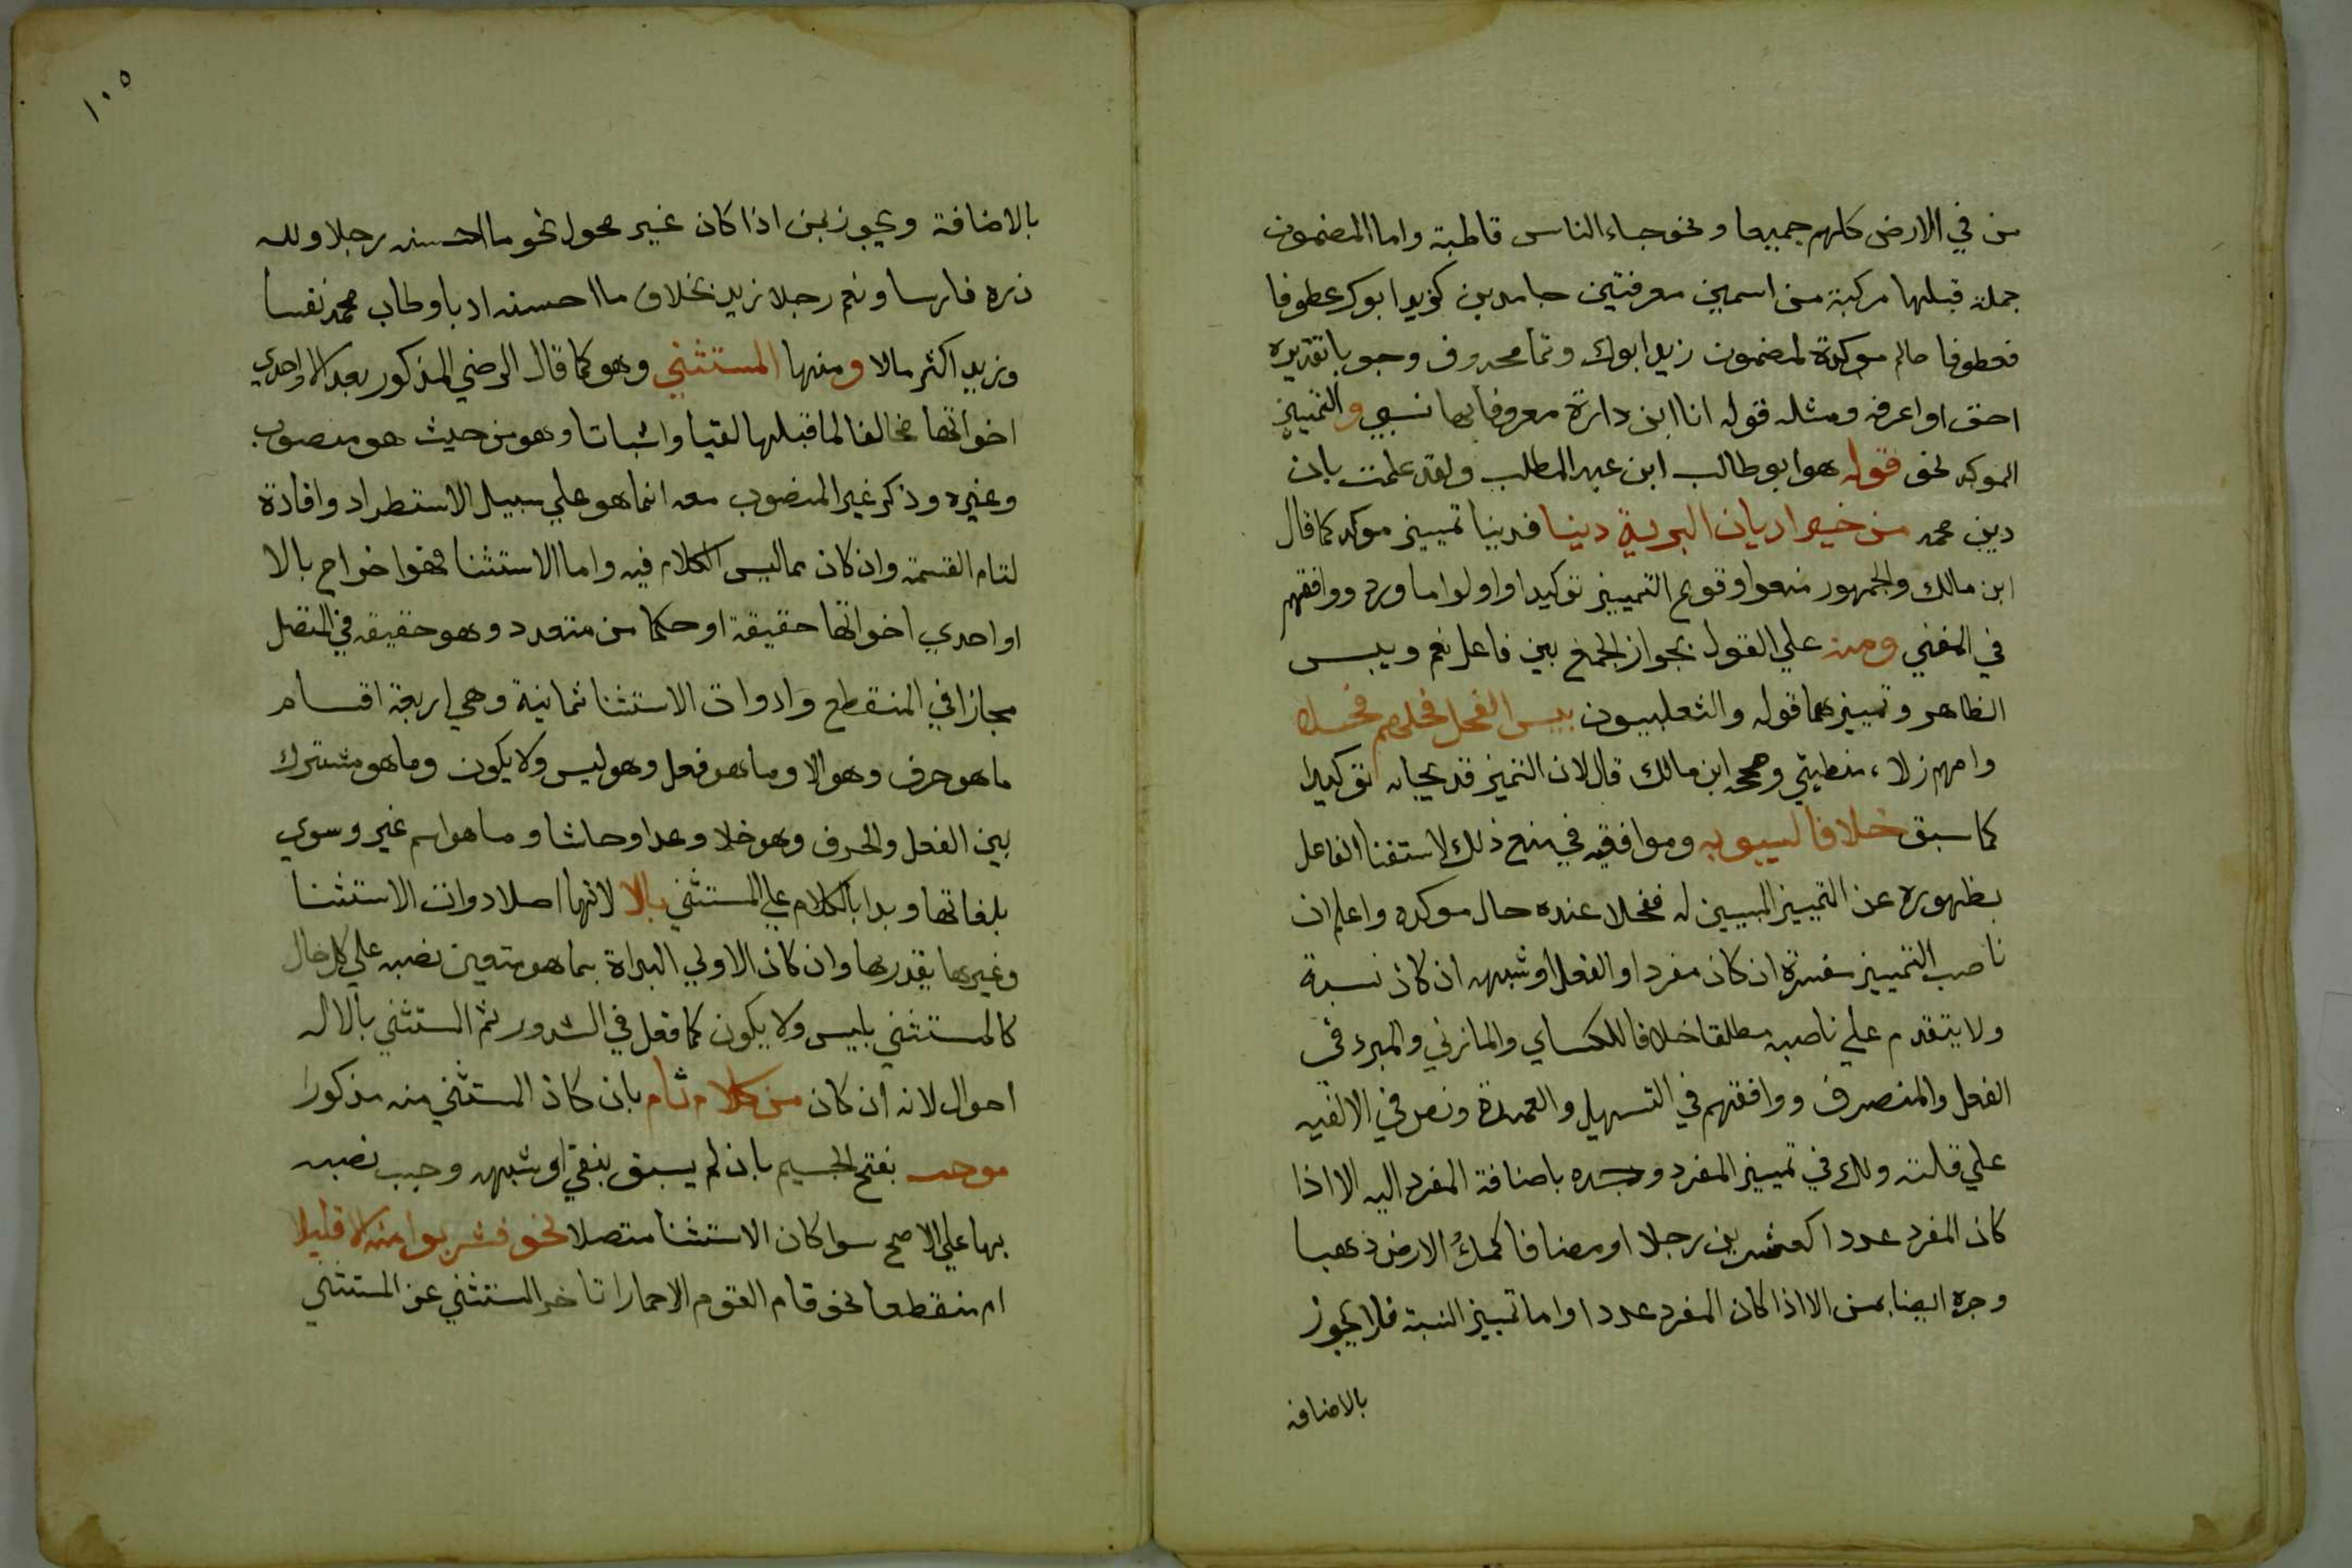 من في الارض كلهم جميعا ونحو جاء الناس قاطبة واما المضمون
جملة قبلها مركبة من اسمين معرفتين جامدين كزيد ابوك عطوفا
فعطوفا حال موكدة لمضمون زيد ابوك وتم محذوف وجوبا تقديره
احق او اعرفه ومثله قوله انا ابن دارة معروفا بها نسبي والتمييز
الموكد نحو قوله هو ابو طالب ابن عبد المطلب ولقد علمت بان
دين محمد من خير اديان البرية دينا فدينا تمييز موكد كما قال
ابن مالك والجمهور منعوا وقوع التمييز توكيدا واولوا ما ورد ووافقهم
في المغني ومنه علي القول بجواز الجمع بين فاعل نعم وبيس
الظاهر وتمييزهما قوله والتغلبيون بيس الفحل فحلهم فحلا
وامهم زلاء منطيق وصححه ابن مالك قال لان التميز قد يجاء به توكيدا
كما سبق خلافا لسيبويه وموافقيه في منع ذلك لاستغنا الفاعل
بظهوره عن التمييز المبيين له ففحلا عنده حال موكده واعلم ان
ناصب التمييز مفسره ان كان مفردا والفعل او شبهه ان كان نسبة
ولا يتقدم علي ناصبه مطلقا خلافا للكساي والمازني والمبرد في
الفعل والمتصرف ووافقهم في التسهيل والعمدة ونص في الالفيه
علي قلته ولك في تمييز المفرد وجره باضافة المفرد اليه الا اذا
كان المفرد عددا كعشرين رجلا او مضافا كملؤ الارض ذهبا
وجره ايضا بمن الا اذا كان المفرد عددا واما تمييز النسبة فلا يجوز
بالاضافه
١٠٥
بالاضافة ويجوز بمن اذا كان غير محول نحو ما احسنه رجلا ولله
دره فارسا ونعم رجلا زيد بخلاف ما احسنه ادبا وطاب محمد نفسا
وزيد اكثر مالا ومنها المستثني وهو كما قال الرضي المذكور بعد الا او احدي
اخواتها مخالفا لما قبلها نفيا واثباتا وهو من حيث هو منصوب
وغيره وذكر غير المنصوب معه انما هو علي سبيل الاستطراد وافادة
لتمام القسمة وان كان مما ليس الكلام فيه واما الاستثنا فهو اخراج بالا
او احدي اخواتها حقيقة او حكما من متعدد وهو حقيقه في المتصل
مجازا في المنقطع وادوات الاستثنا ثمانية وهي اربعة اقسام
ما هو حرف وهو الا وما هو فعل وهو ليس ولا يكون وما هو مشترك
بين الفعل والحرف وهو خلا وعدا وحاشا وما هو اسم غير وسوي
بلغاتها وبدا بالكلام علي المستثني بالا لانها اصل ادوات الاستثنا
وغيرها يقدر بها وان كان الاولي البداة بما هو متعين نصبه علي كل حال
كالمستثني بليس ولا يكون كما فعل في الشذور ثم المستثني بالا له
احوال لانه ان كان من كلام تام بان كان المستثني منه مذكورا
موجب بفتح الجيم بان لم يسبق بنفي او شبهه وجب نصبه
بها علي الاصح سوا كان الاستثنا متصلا نحو فشربوا منه الا قليلا
ام منقطعا نحو قام القوم الا حمارا تاخر المستثني عن المستثني